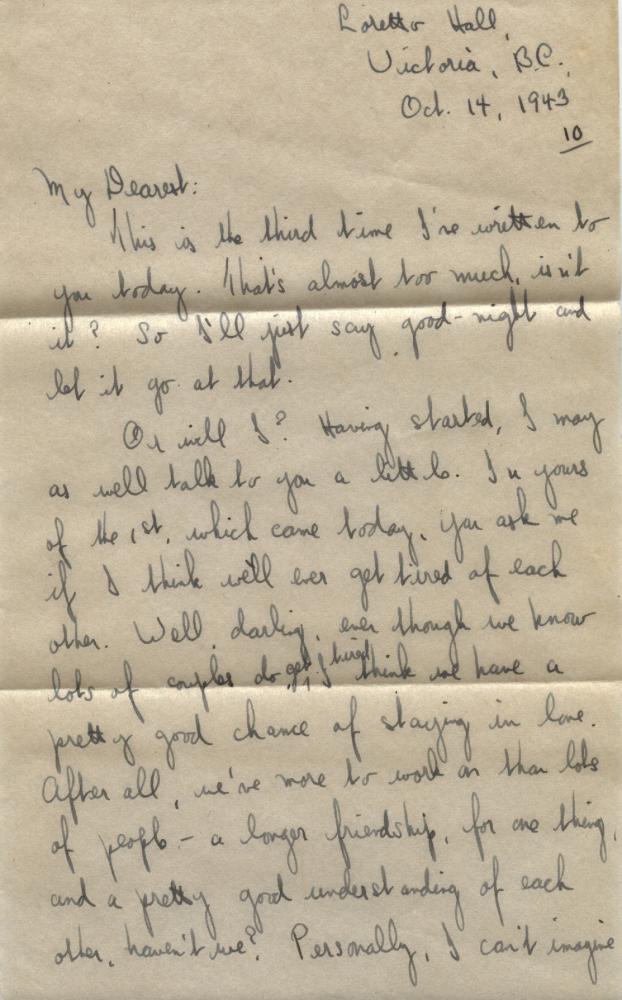 Loretto Hall,
Victoria, B.C.,
Oct. 14, 1943
10
My Dearest:
This is the third time I've written to
you today. That's almost too much, isn't
it? So I'll just say good-night and
let it go at that.
Or will I? Having started, I may
as well talk to you a little. In yours
of the 1st, which came today, you ask me
if I think we'll ever get tired of each
other. Well, darling, even though we know
lots of couples do get tired, I think we have a
pretty good chance of staying in love.
After all, we've more to work on than lots
of people - a longer friendship, for one thing,
and a pretty good understanding of each
other, haven't we? Personally, I can't imagine